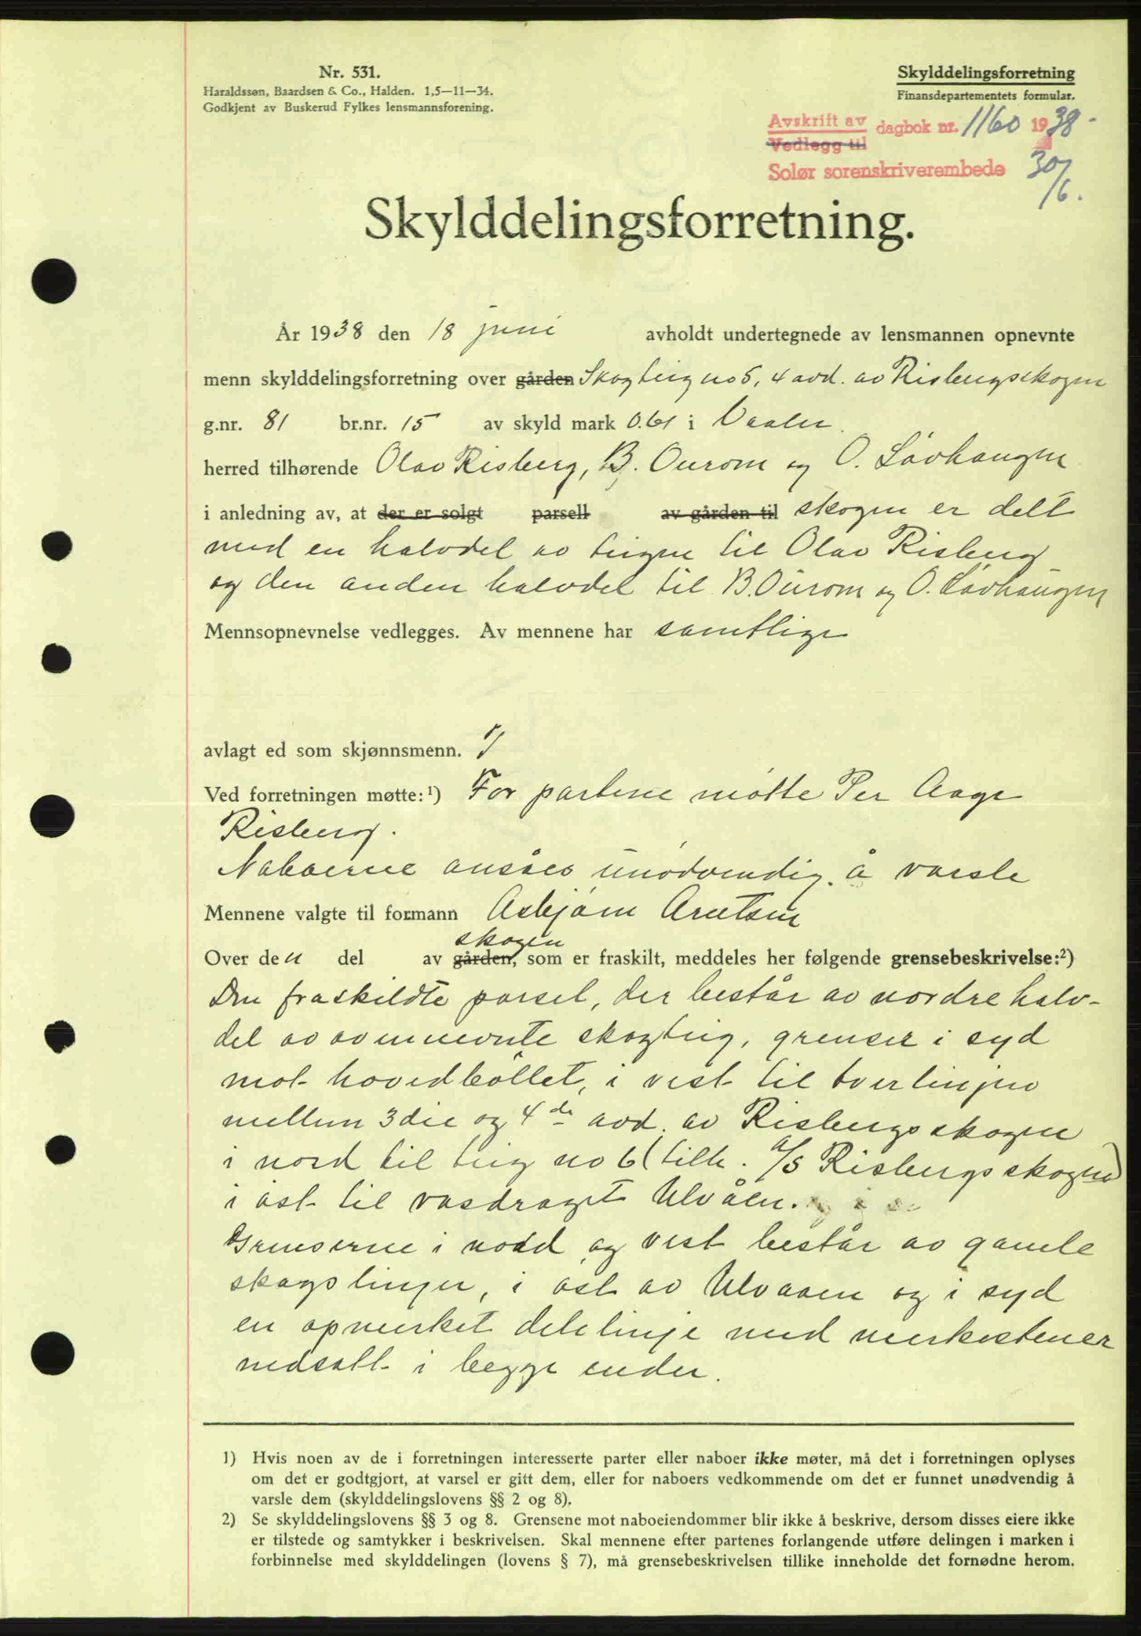 Nr. 531.
Haraldssøn, Baardsen & Co., Halden. 1,5—11—34.
Godkjent av Buskerud Fylkes lensmannsforening.
Skylddelingsforretning
Finansdepartementets formular.
Avskrift av dagbok nr. 1160 1938-
Vedlegg til
Solør sorenskriverembede 30/6.
Skylddelingsforretning.
År 1938 den 18 juni avholdt undertegnede av lensmannen opnevnte
menn skylddelingsforretning over gården Skogteig no 5, 4 avd. av Risbergskogen
g.nr. 81 br.nr. 15 av skyld mark 0.61 i Vaaler
herred tilhørende Olav Risberg, B. Ourom og O. Løvhaugen
i anledning av, at der er solgt parsell av gården til skogen er delt
med en halvdel av teigen til Olav Risberg
og den anden halvdel til B. Ourom og O. Løvhaugen
Mennsopnevnelse vedlegges. Av mennene har samtlige
avlagt ed som skjønnsmenn.
Ved forretningen møtte:¹) For partene møtte Per Aage
Risberg.
Naboerne ansåes unødvendig å varsle
Mennene valgte til formann Asbjørn Arntsen
skogen
Over den del av gården, som er fraskilt, meddeles her følgende grensebeskrivelse:²)
Den fraskildte parsel, der består av nordre halv-
del av ovennevnte skogteig, grenser i syd
mot hovedbøllet, i vest til tverlinjen
mellem 3die og 4de avd. av Risbergsskogen
i nord til teig no 6 (tilh. A/S Risbergsskogen)
i øst til vasdraget Ulvåen.
Grenserne i nord og vest består av gamle
skogslinjer, i øst av Ulvaaen og i syd
en opmerket delelinje med merkestener
nedsatt i begge ender.
1) Hvis noen av de i forretningen interesserte parter eller naboer ikke møter, må det i forretningen oplyses
om det er godtgjort, at varsel er gitt dem, eller for naboers vedkommende om det er funnet unødvendig å
varsle dem (skylddelingslovens §§ 2 og 8).
2) Se skylddelingslovens §§ 3 og 8. Grensene mot naboeiendommer blir ikke å beskrive, dersom disses eiere ikke
er tilstede og samtykker i beskrivelsen. Skal mennene efter partenes forlangende utføre delingen i marken i
forbinnelse med skylddelingen (lovens § 7), må grensebeskrivelsen tillike inneholde det fornødne herom.